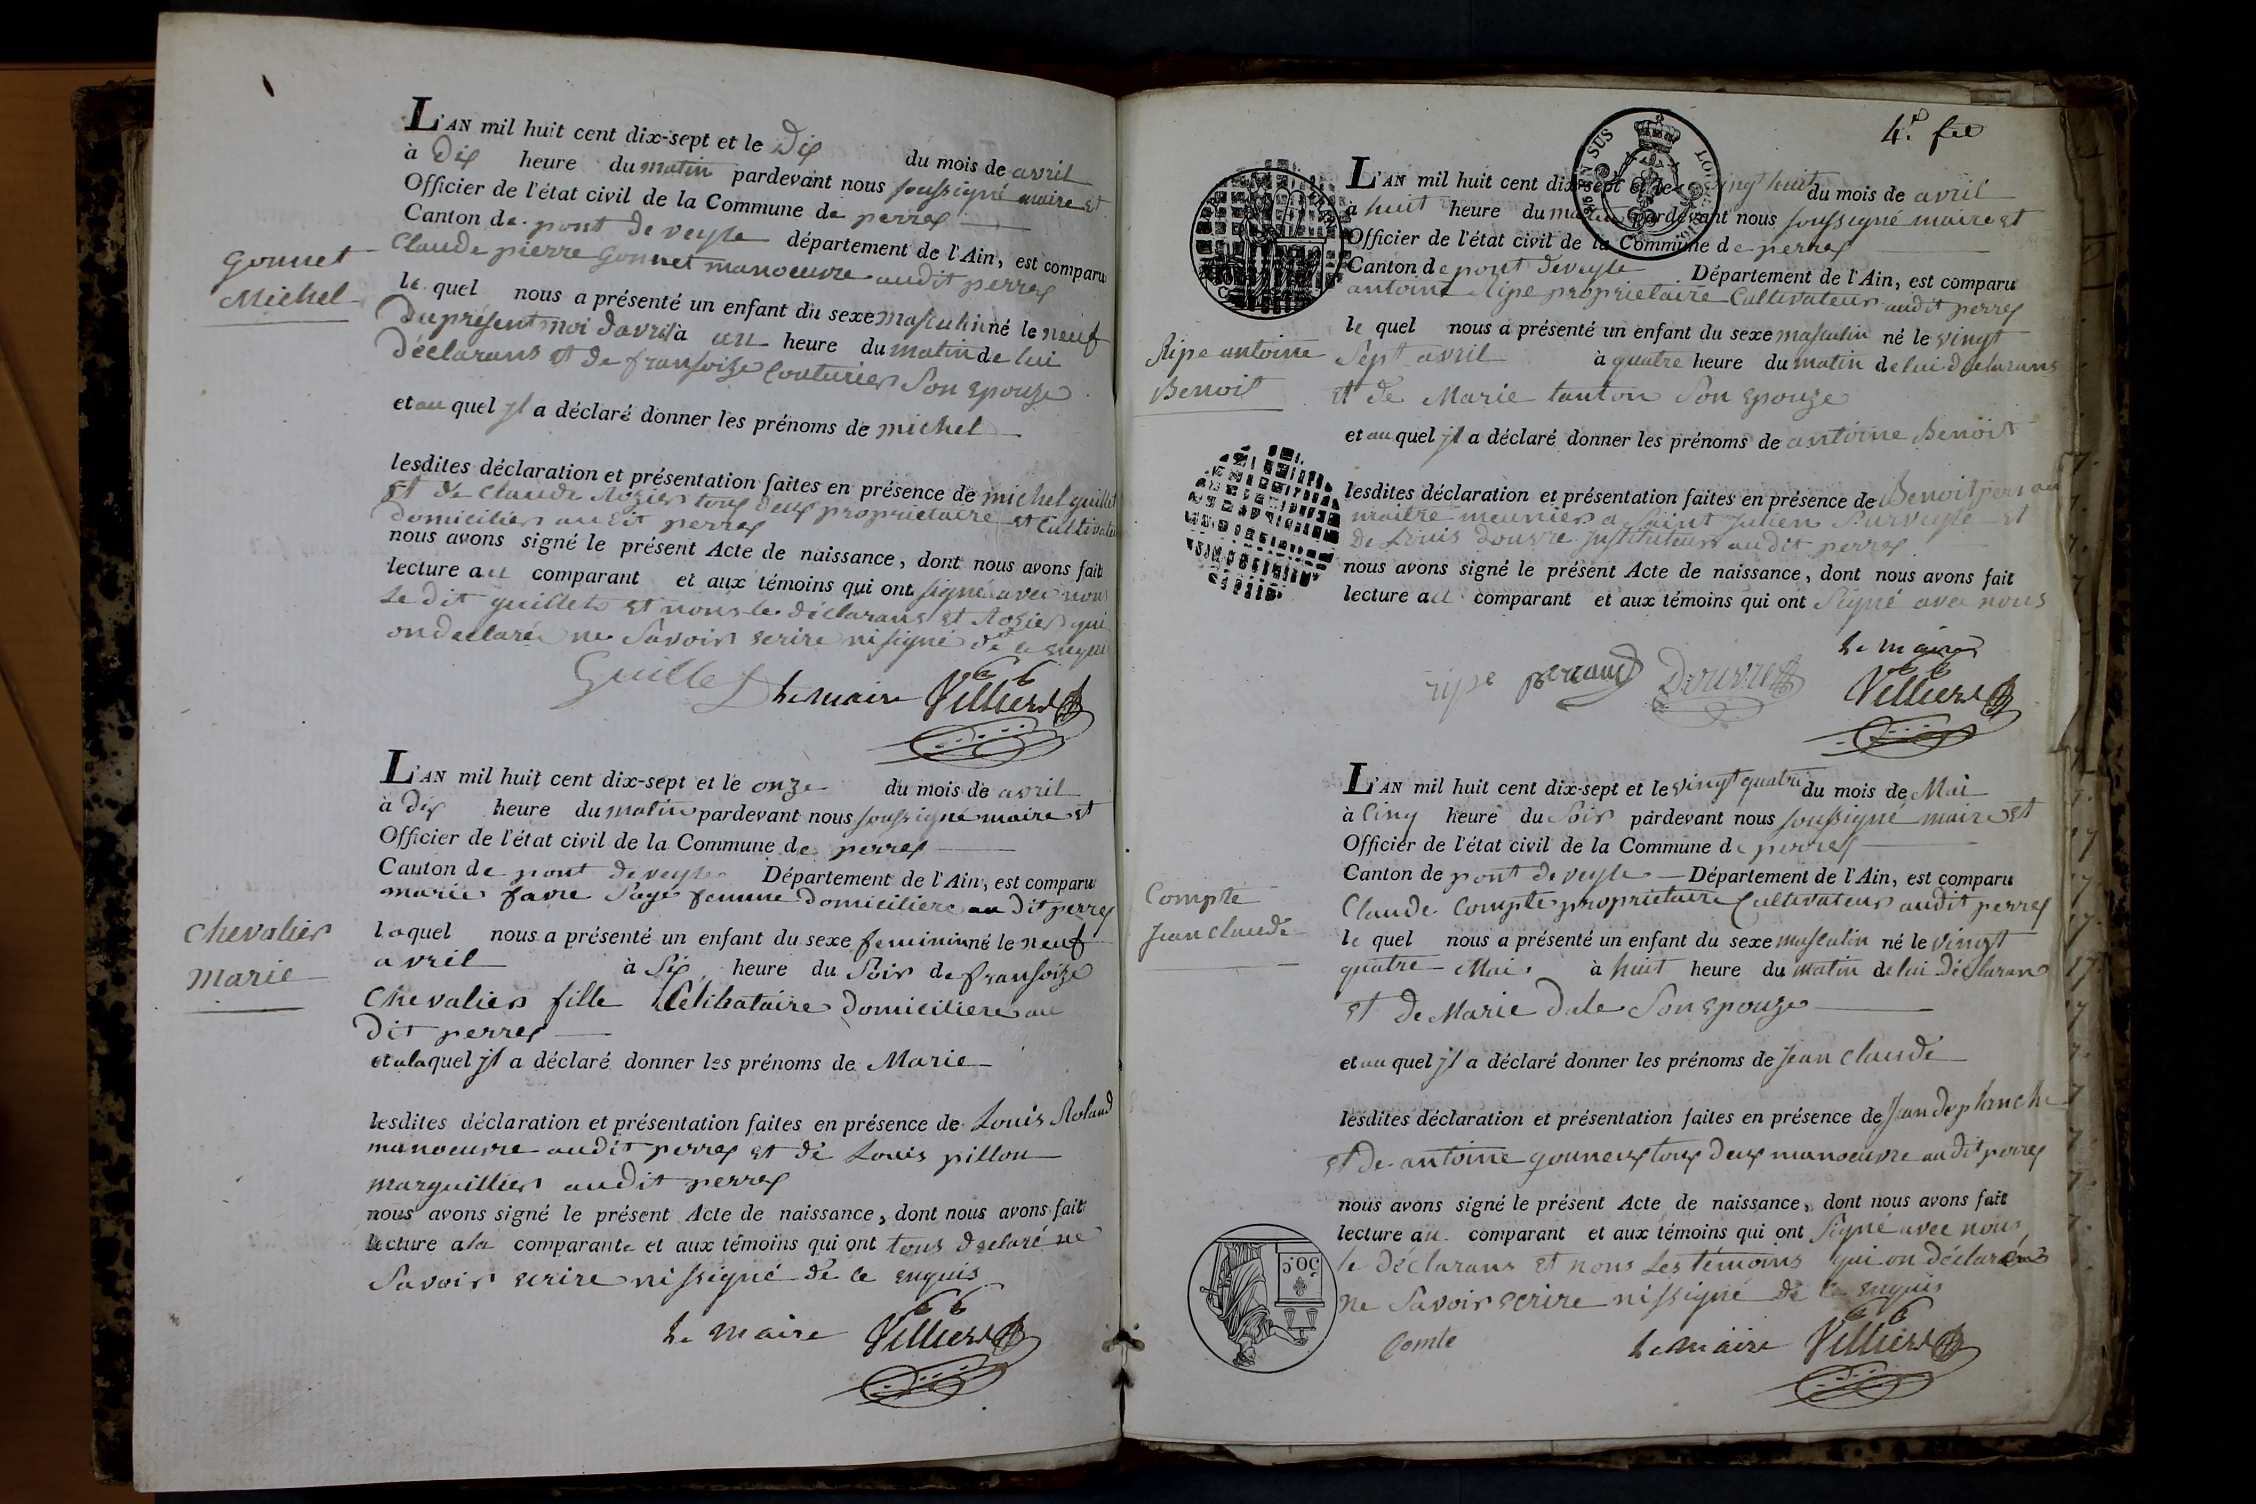 L'AN mil huit cent dix-sept et le Dix du mois de avril
à Dix heure du matin pardevant nous soussigné maire et
Officier de l'état civil de la Commune de perrex
Canton de pont de veyle département de l'Ain, est comparu
Claude pierre Gonnet manoeuvre audit perrex
le quel nous a présenté un enfant du sexe masculin né le neuf
Du présent moi d'avril à un heure du matin de lui
Déclarans et de fransoize Couturier Son Epouze
et au quel jl a déclaré donner les prénoms de michel
Gonnet
Michel
lesdites déclaration et présentation faites en présence de michel guillet
Et de Claude Rozier tous deux proprietaire et Cultivateu
domicilier au dit perrex
nous avons signé le présent Acte de naissance, dont nous avons fait
lecture au comparant et aux témoins qui ont signé avec nous
Le dit guillet et nous le déclarans et Rozier qui
on declaré ne Savoir ecrire ni signé de ce enquis
Guillet le maire Villierd
L'AN mil huit cent dix-sept et le onze du mois de avril
à dix heure du matin pardevant nous soussigné maire et
Officier de l'état civil de la Commune de perrex
Canton de pont de veyle Département de l'Ain, est comparu
marie favre Sage femme Domiciliere au dit perrex
laquel nous a présenté un enfant du sexe feminin né le neuf
avril à Six heure du Soir de fransoize
Chevalier fille Célibataire domiciliere au
Dit perrex
et a laquel jl a déclaré donner les prénoms de Marie
Chevalier
Marie
lesdites déclaration et présentation faites en présence de Louis Roland
manoeuvre audit perrex et de Louis pillon
marguillier audit perrex
nous avons signé le présent Acte de naissance, dont nous avons fait
lecture a la comparante et aux témoins qui ont tous declaré ne
Savoir ecrire ni ssigné de ce enquis
le maire Villierd
4.e fet
L'AN mil huit cent dix-sept et le vingt huit du mois de avril
à huit heure du matin pardevant nous soussigné maire et
Officier de l'état civil de la Commune de perrex
Canton de pont de veyle Département de l'Ain, est comparu
antoine Ripe proprietaire Cultivateur audit perrex
le quel nous a présenté un enfant du sexe masculin né le vingt
Sept avril à quatre heure du matin de lui declarans
et de Marie tanton Son Epouze
et au quel jl a déclaré donner les prénoms de antoine Benoit
Ripe antoine
Benoit
lesdites déclaration et présentation faites en présence de Benoit perraud
maitre meunier a Saint Julien Sur veyle et
De Louis Douvre jnstituteur audit perrex
nous avons signé le présent Acte de naissance, dont nous avons fait
lecture au comparant et aux témoins qui ont Signé avec nous
le maire
ripe perraud Douvre Villierd
L'AN mil huit cent dix-sept et le vingt quatre du mois de Mai
à Cinq heure du Soir pardevant nous soussigné maire et
Officier de l'état civil de la Commune de perrex
Canton de pont de veyle Département de l'Ain, est comparu
Claude Compte proprietaire Cultivateur audit perrex
le quel nous a présenté un enfant du sexe masculin né le vingt
quatre Mai à huit heure du matin de lui Déclaran
et de Marie Dale Son Epouze
et au quel jl a déclaré donner les prénoms de Jean Claude
Compte
Jean Claude
lesdites déclaration et présentation faites en présence de Jean Desplanche
et de antoine gouneux tous deux manoeuvre audit perrex
nous avons signé le présent Acte de naissance, dont nous avons fait
lecture au comparant et aux témoins qui ont Signé avec nous
le déclarans et nons Les témoins qui on déclaréns
ne Savoir ecrire ni ssigné de ce enquis
Comte le maire Villierd
50.C